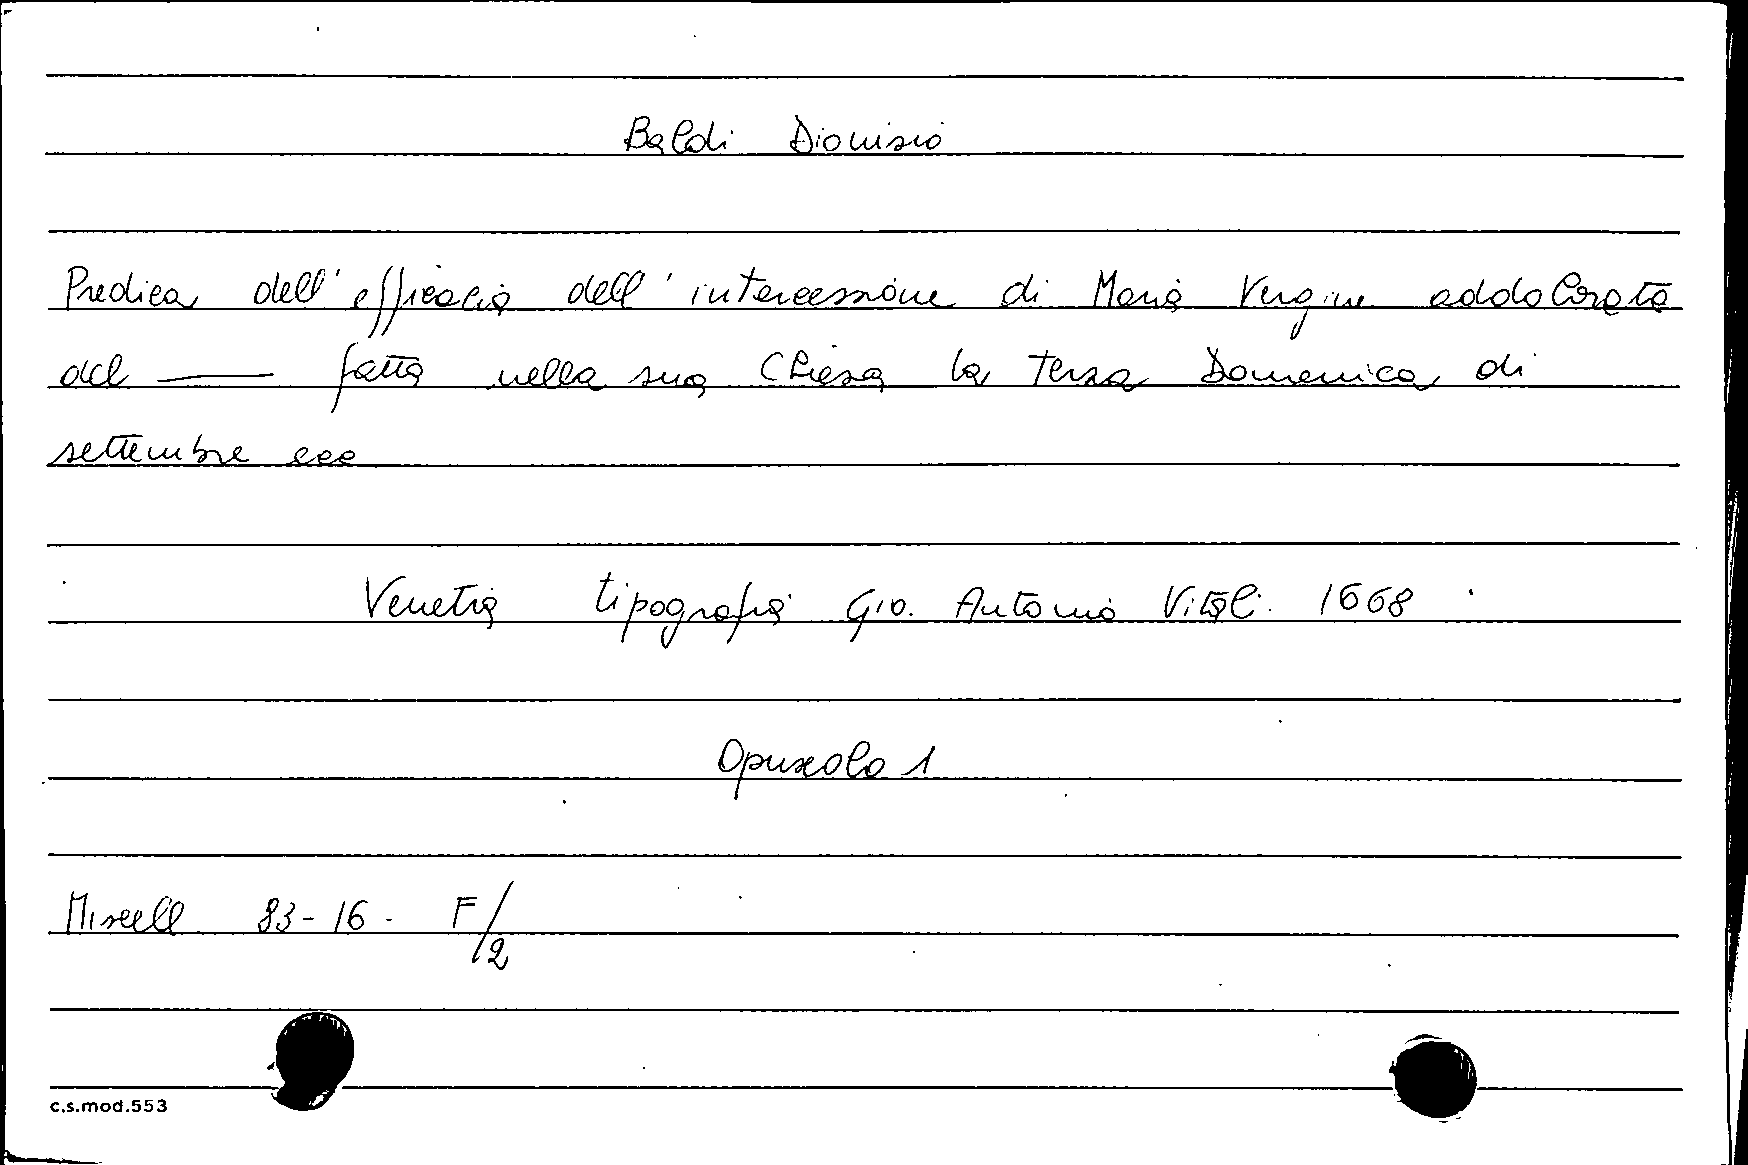 Baldi Dionisio
Predica dell'efficacia dell'intercessione di Maria Vergine addolorata
del —— fatta nella sua Chiesa la terza Domenica di
settembre ecc
Venetia tipografia Gio. Antonio Vitali. 1668
Opuscolo 1
Miscell 83-16- F/2
c.s.mod.553